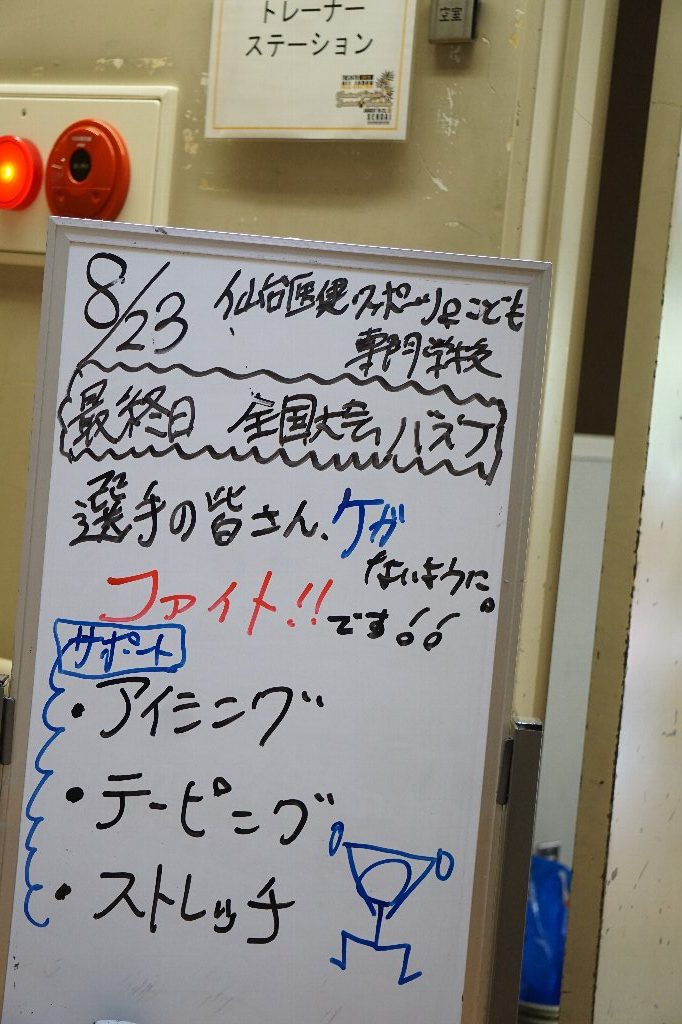 トレーナー
ステーション
空室
SENDAI
8/23 仙台医健スポーツ&こども
専門学校
最終日 全国大会 バスケ
選手の皆さん、ケガ
ないように。
ファイト!!です!!
サポート
・アイシング
・テーピング
・ストレッチ